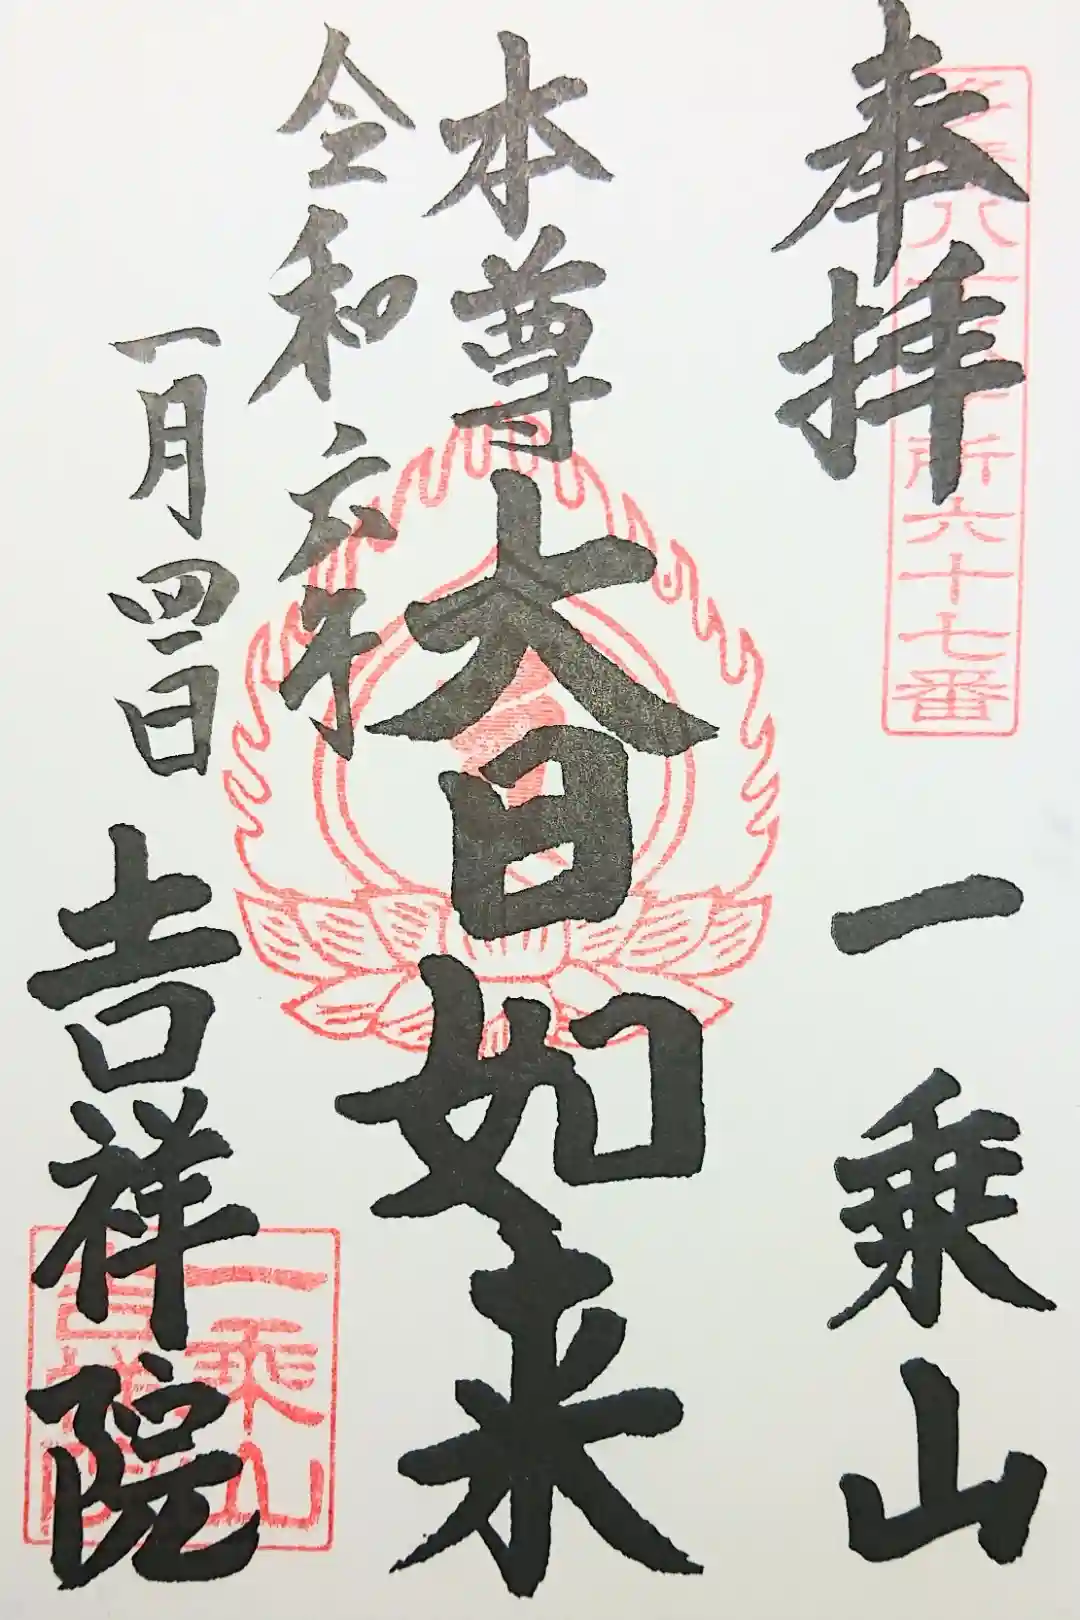 奉拝
一乗山
多摩八十八ヶ所六十七番
本尊大日如来
令和六年
一月四日
吉祥院
一乗山
吉祥院